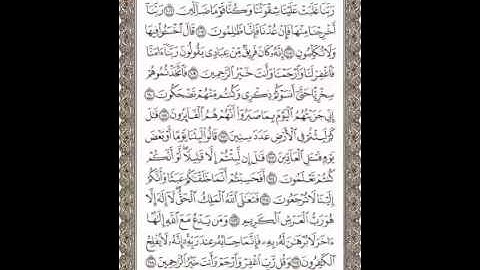 رَبَّنَا غَلَبَتْ عَلَيْنَا شِقْوَتُنَا وَكُنَّا قَوْمًا ضَآلِّينَ ١٠٦ رَبَّنَآ
أَخْرِجْنَا مِنْهَا فَإِنْ عُدْنَا فَإِنَّا ظَٰلِمُونَ ١٠٧ قَالَ ٱخْسَـُٔوا۟ فِيهَا
وَلَا تُكَلِّمُونِ ١٠٨ إِنَّهُۥ كَانَ فَرِيقٌ مِّنْ عِبَادِى يَقُولُونَ رَبَّنَآ ءَامَنَّا
فَٱغْفِرْ لَنَا وَٱرْحَمْنَا وَأَنتَ خَيْرُ ٱلرَّٰحِمِينَ ١٠٩ فَٱتَّخَذْتُمُوهُمْ
سِخْرِيًّا حَتَّىٰٓ أَنسَوْكُمْ ذِكْرِى وَكُنتُم مِّنْهُمْ تَضْحَكُونَ ١١٠
إِنِّى جَزَيْتُهُمُ ٱلْيَوْمَ بِمَا صَبَرُوٓا۟ أَنَّهُمْ هُمُ ٱلْفَآئِزُونَ ١١١ قَٰلَ
كَمْ لَبِثْتُمْ فِى ٱلْأَرْضِ عَدَدَ سِنِينَ ١١٢ قَالُوا۟ لَبِثْنَا يَوْمًا أَوْ بَعْضَ
يَوْمٍ فَسْـَٔلِ ٱلْعَآدِّينَ ١١٣ قَٰلَ إِن لَّبِثْتُمْ إِلَّا قَلِيلًا لَّوْ أَنَّكُمْ
كُنتُمْ تَعْلَمُونَ ١١٤ أَفَحَسِبْتُمْ أَنَّمَا خَلَقْنَٰكُمْ عَبَثًا وَأَنَّكُمْ
إِلَيْنَا لَا تُرْجَعُونَ ١١٥ فَتَعَٰلَى ٱللَّهُ ٱلْمَلِكُ ٱلْحَقُّ لَآ إِلَٰهَ إِلَّا
هُوَ رَبُّ ٱلْعَرْشِ ٱلْكَرِيمِ ١١٦ وَمَن يَدْعُ مَعَ ٱللَّهِ إِلَٰهًا
ءَاخَرَ لَا بُرْهَٰنَ لَهُۥ بِهِۦ فَإِنَّمَا حِسَابُهُۥ عِندَ رَبِّهِۦٓ إِنَّهُۥ لَا يُفْلِحُ
ٱلْكَٰفِرُونَ ١١٧ وَقُل رَّبِّ ٱغْفِرْ وَٱرْحَمْ وَأَنتَ خَيْرُ ٱلرَّٰحِمِينَ ١١٨